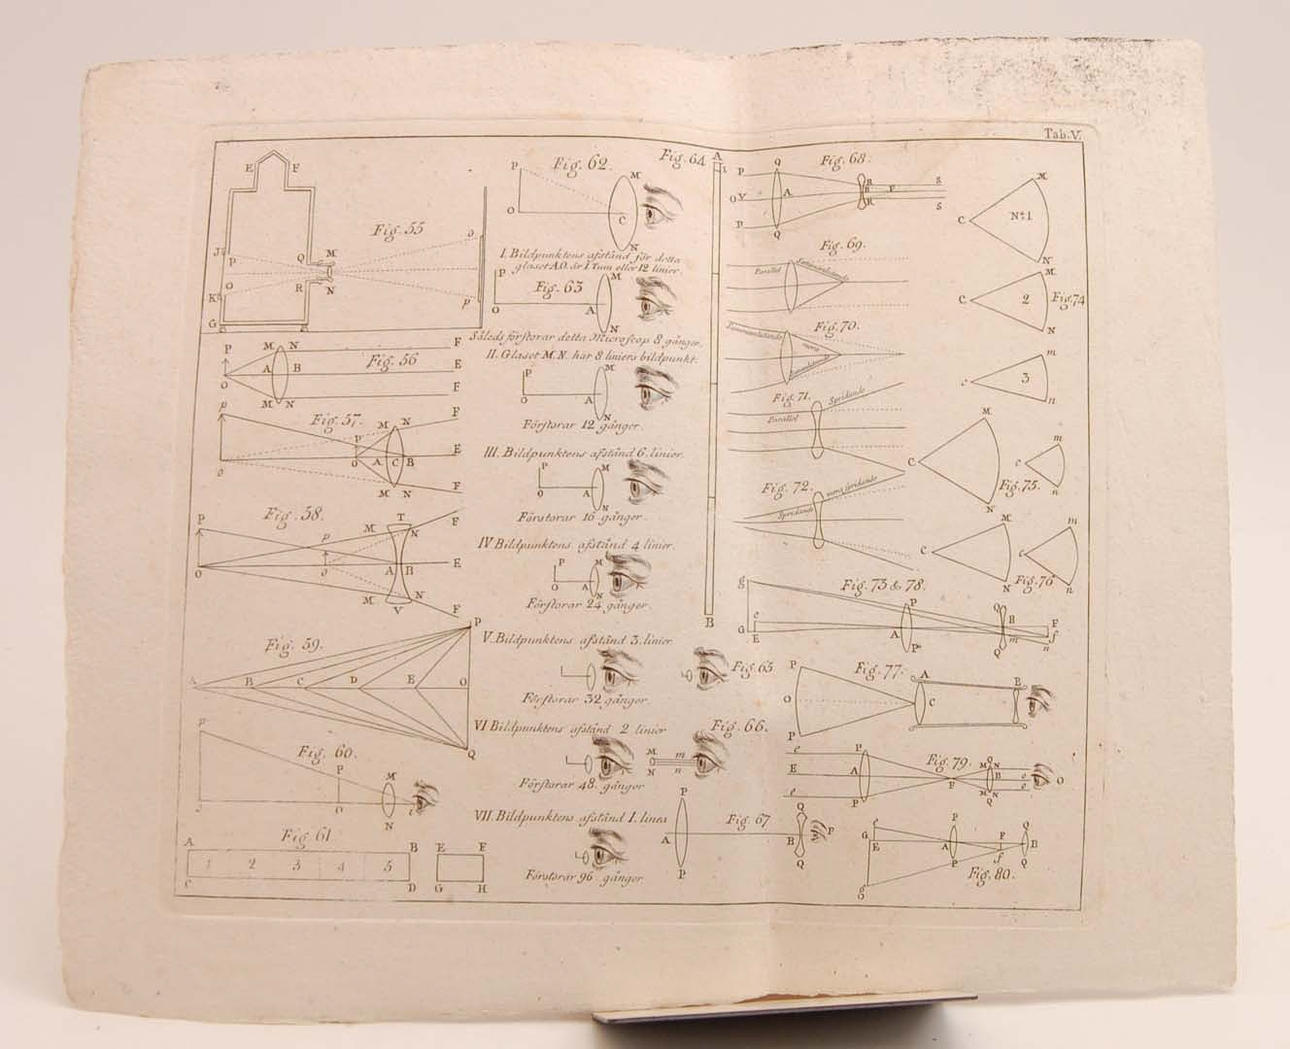 Tab. V.
E F
Fig. 55
J
P
O
K
G
Q M
R N
o
p
P M N F
Fig. 56
A B E
O
M N F
p
Fig. 57.
M N F
P
O A C B E
o
M N F
Fig. 58
P M T N F
p
O o A B E
M N
V F
Fig. 59.
P
A B C D E O
Q
P
Fig. 60.
P M
O N
Fig. 61
A B E F
1 2 3 4 5
C D G H
Fig. 62.
P M
O C
N
I. Bildpunktens afstånd för detta
glaset A.O. är 1 Tum eller 12 linier.
Fig. 63
P M
O A
N
Således förstorar detta Microscop 8 gånger.
II. Glaset M.N. har 8 liniers bildpunkt.
P M
O A
N
Förstorar 12 gånger.
III. Bildpunktens afstånd 6. linier.
P M
O A
N
Förstorar 16 gånger.
IV Bildpunktens afstånd 4 linier.
P M
O A
N
Förstorar 24 gånger.
V. Bildpunktens afstånd 3. linier
Förstorar 32 gånger.
VI Bildpunktens afstånd 2 linier
Förstorar 48. gånger
VII. Bildpunktens afstånd 1. linea
Förstorar 96 gånger.
Fig. 64
A
1
B
Fig. 65
Fig. 66.
M m
N n
Fig. 67
P Q
A B F
P Q
Fig. 68.
P Q R S
O V A B F
P Q R S
Fig. 69.
Parallel
Fig. 70.
Fig. 71.
Spridande
Parallel
Fig. 72.
mera spridande
Spridande
Fig. 73 & 78.
g
e P Q B F
G E A f
P Q m n
M
C No 1
N
M
C 2 Fig. 74
N
m
c 3
n
M
C
N
m
c
n
Fig. 75.
M
C
N
m
c
n
Fig. 76
P
Fig. 77.
A B
O C
P
Fig. 79.
e P Q
M N
E A F B e O
M N
e P Q
e P F Q
G E A f B
P Q
g
Fig. 80.